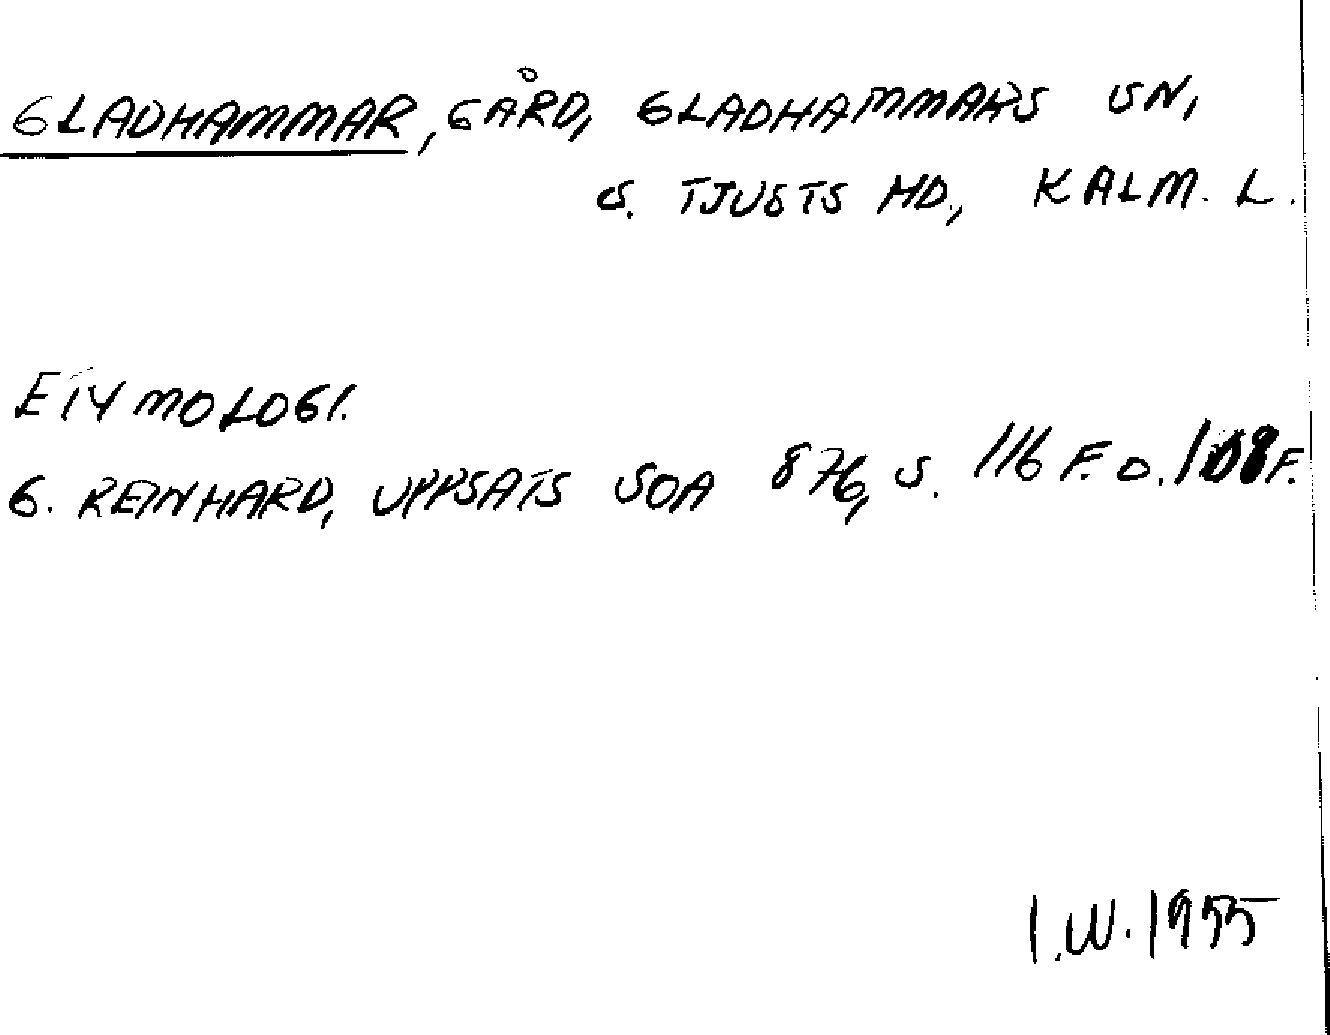 GLADHAMMAR, GÅRD, GLADHAMMARS SN,
S. TJUSTS HD., KALM. L.
ETYMOLOGI.
G. REINHARD, UPPSATS SOA 876, S. 116 F. O. 108 F.
I.W. 1955